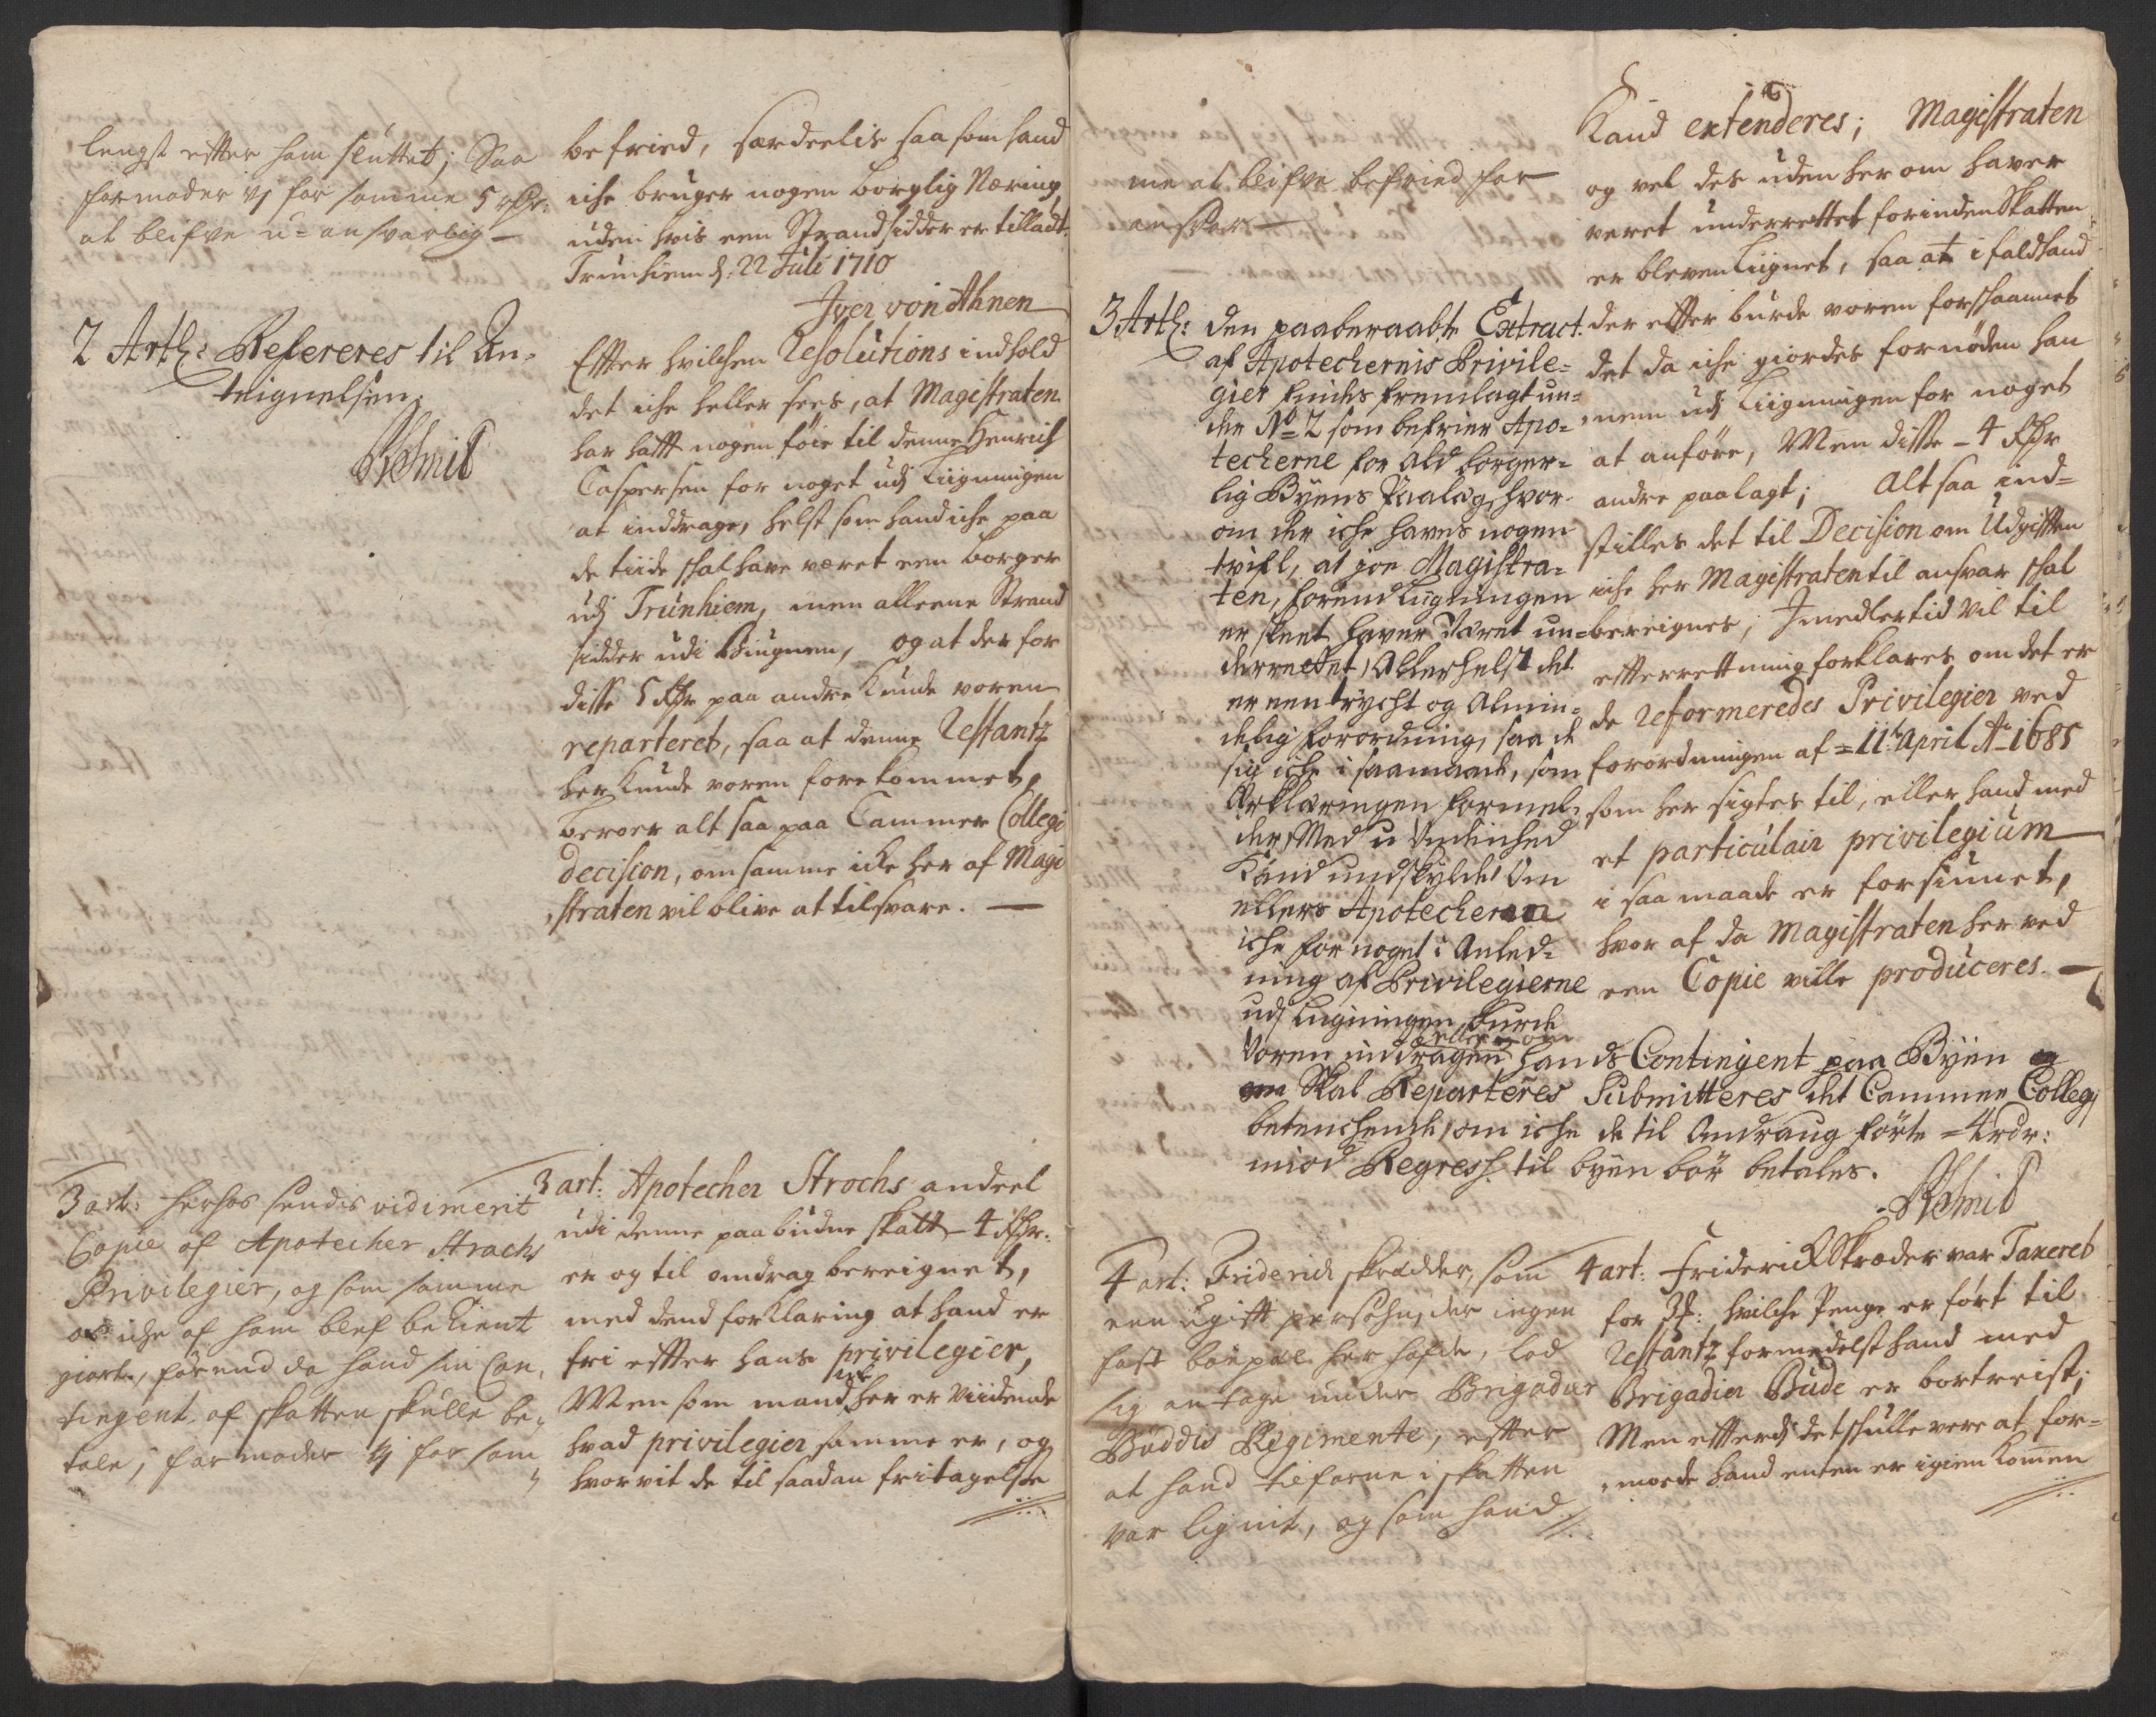 lengst efter ham sluttet; Saa
formoder vj for samme 5 rdr:
at blifve u-ansvarlig —
2 Artl: Refereres til An-
teignelsen.
befried, særdeelis saa som hand
iche bruger nogen borglig Næring
uden hvis een Strandsidder er tilladt.
Trunhiem d: 22 Juli 1710
Iver von Ahnen
Effter hvilchen Resolutions indhold
det iche heller sees, at Magistraten
har hafft nogen føie til denne Henrich
Caspersen for noget udj Liigningen
at inddrage, helst som hand iche paa
de tiide schal have været een borger
udj Trunhiem, men alleene Strand
sidder udi Biugnen, og at der for
disse 5 Rdr paa andre kunde voren
reparteret, saa at denne Restantz
her kunde voren forekommet,
beroer alt saa paa Cammer Collegi
decision, om samme icke her af Magi
straten vil blive at tilsvare. —
3 art: herhos sendes vidimerit
Copie af Apotecher Strochs
Privilegier, og som samme
iche af ham blef bekient
giort, førend da hand sin Con-
tingent af skatten skulle be-
tale; formoder vj for sam
3 art: Apotecher Strochs andeel
udi denne paabudne skatt 4 Rdr.
er og til andrag bereignet,
med dend forklaring at hand er
fri effter hans privilegier,
Men som mand iche her er Viidende
hvad privilegier samme er, og
hvorvit de til saadan fritagelse
me at blifve befried for
ansvar —
3 Artl: den paaberaabte Extract
af Apotechernis Privile=
gier findes fremlagt un=
der No 2 som befrier Apo=
techerne for ald borger=
lig Byens Paalæg, hvor
om der iche haves nogen
tvifl, at joe Magistra=
ten, forend Ligningen
er skeet haver Været un=
derrettet, Allerhelst det
er een trycht og Almin=
delig forordning, saa de
sig iche i saamaade, som
Erklæringen formel=
der, Med u Videnhed
kand undskylde, Om
ellers Apotecheren
iche for noget i Anled=
ning af Privilegierne
udj Lugningen burde
Voren inddragen eller om hands Contingent paa Byen
Skal Reparteres Submitteres det Cammer Collegj
betenchende, om iche de til Andraug førte 4 rdr:
mod Regress til byen bør betales.
Kand extenderes; Magistraten
og vel des uden her om haver
veret underrettet forinden Skatten
er bleven Liignet, saa at i fald hand
der effter burde voren forskaannet
det da iche giordes fornøden han
nem udj Liigningen for noget
at anføre, Men disse 4 Rdr
andre paalagt; Alt saa ind=
stilles det til Decision om Udgifften
iche her Magistraten til ansvar schal
bereignes; Imedlertid vil til
effterrettning forklares om det er
de reformeredes Privilegier ved
forordningen af 11te April Ao 1685
som her sigtes til, eller hand med
et particulair privilegium
i saa maade er forsiunet,
hvor af da Magistraten her ved
een Copie ville produceres. —
4 art: Friderich skrædder, som
een ugift persohn, der ingen
fast boepæl her hafde, lod
sig antage under Brigadier
Buddes Regimente, efter
at hand tilforne i skatten
var lignit, og som hand
4 art: Friderich Skræder var Taxeret
for 3 : hvilche Penge er ført til
Restantz formedelst hand med
Brigadier Bude er bortreist;
Men effterdj det schulle vere at for=
mode hand enten er igien kommen